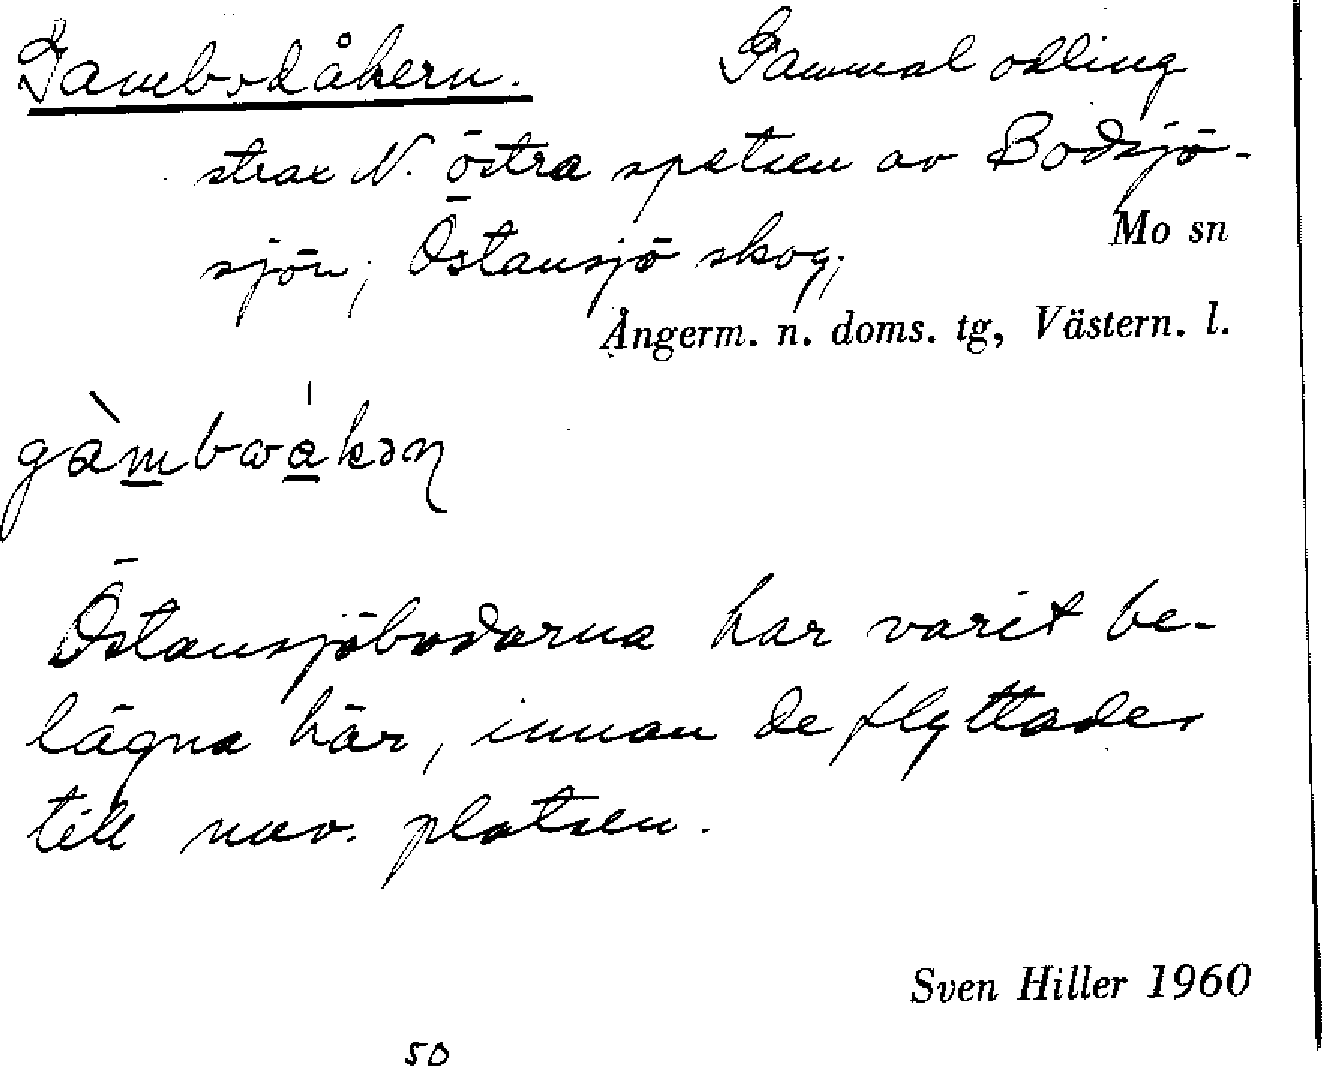 Gambodåkern. Gammal odling
strax N. östra spetsen av Bodsjö-
sjön, Östansjö skog,
Mo sn
Ångerm. n. doms. tg, Västern. l.
gàmbωákən
Östansjöbodarna har varit be-
lägna här, innan de flyttades
till nuv. platsen.
Sven Hiller 1960
50